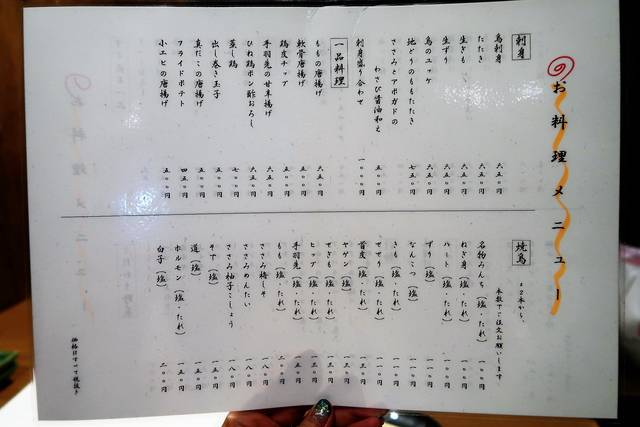 のお料理メニュー
刺身
鳥刺身 六五〇円
たたき 六五〇円
生きも 六五〇円
生ずり 六五〇円
鳥のユッケ 六五〇円
地どりのももたたき 七五〇円
ささみとアボガドの
わさび醤油和え 五五〇円
刺身盛り合わせ 一〇〇〇円
一品料理
ももの唐揚げ 六五〇円
軟骨唐揚げ 五五〇円
鶏皮チップ 五五〇円
手羽先の甘辛揚げ 六五〇円
ひね鶏ポン酢おろし 六五〇円
蒸し鶏 七〇〇円
出し巻き玉子 五五〇円
真だこの唐揚げ 五五〇円
フライドポテト 四五〇円
小エビの唐揚げ 五五〇円
焼鳥
※2本から、
本数でご注文お願いします
名物みんち(塩・たれ) 一〇〇円
ねぎ身(塩・たれ) 一〇〇円
ハート(塩・たれ) 一〇〇円
ずり(塩)
なんこつ(塩)
きも(塩・たれ)
せせり(塩・たれ)
首皮(塩・たれ)
ヤゲン(塩)
せぎも(塩・たれ)
ヒップ(塩・たれ)
手羽先(塩・たれ)
もも(塩・たれ) 二〇〇円
ささみ梅しそ 一八〇円
ささみめんたい 一八〇円
ささみ柚子こしょう 一八〇円
そす(塩) 一五〇円
道(塩) 一五〇円
ホルモン(塩・たれ) 一五〇円
白子(塩) 二〇〇円
価格はすべて税抜き